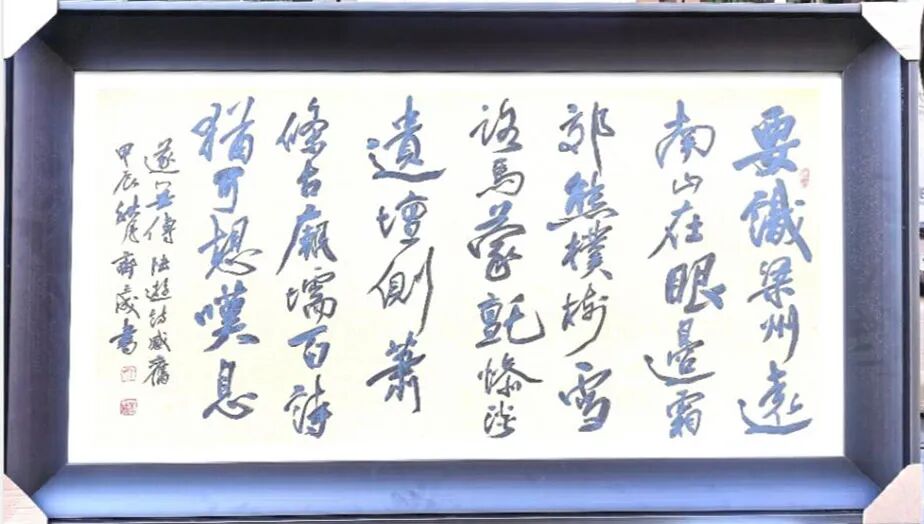 要識梁州遠
南山在眼邊霜
郊熊樸樹雪
路馬蒙氈慘淡
遺壇側蕭
條古廟壖百詩
猶可想嘆息
遂無傳 陸遊詩感舊
甲辰 月 齊成書